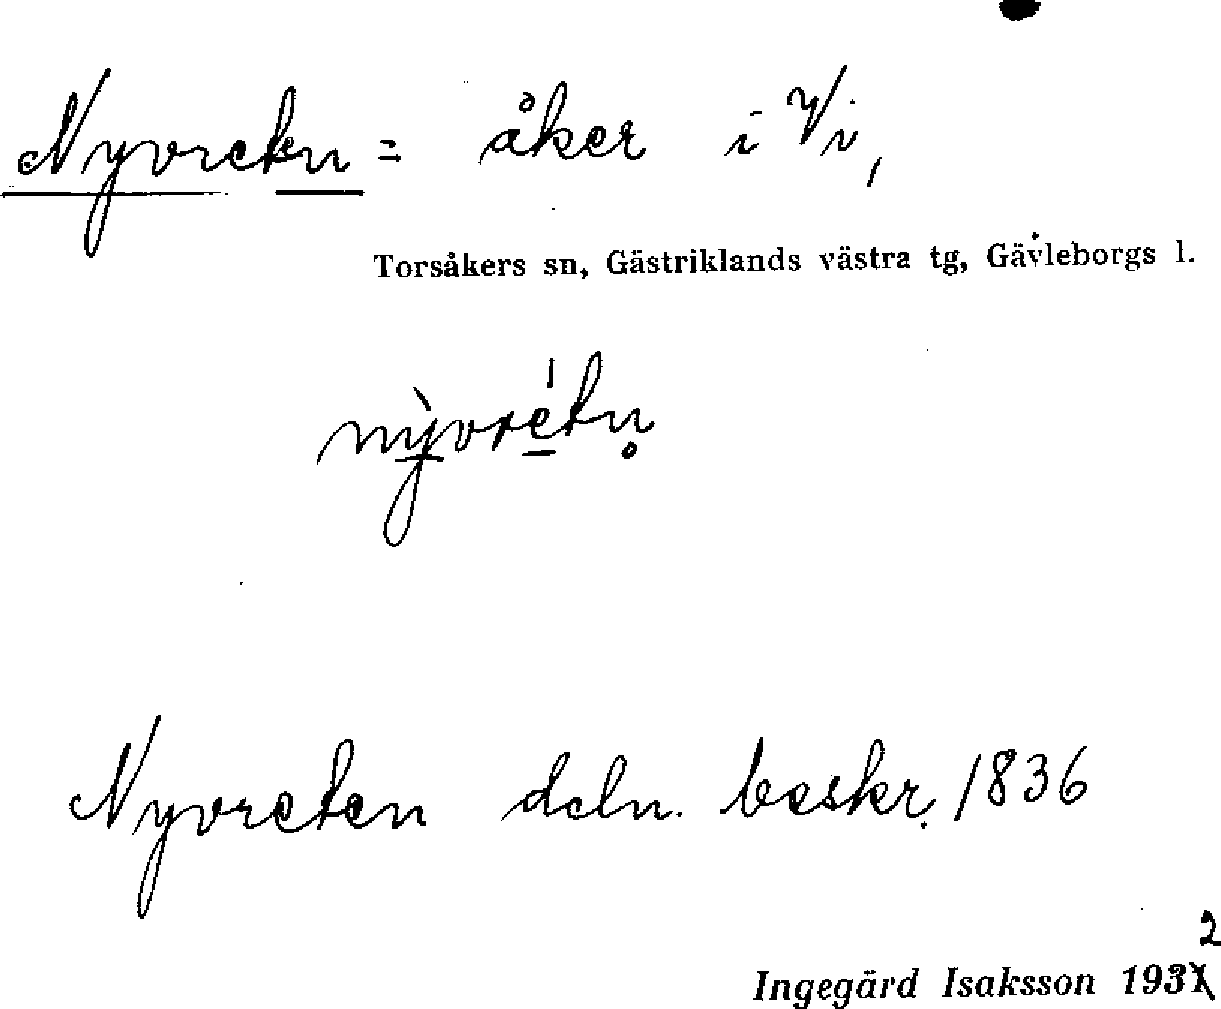 Nyvretn = åker i Vi,
Torsåkers sn, Gästriklands västra tg, Gävleborgs l.
nỳvrétn̥
Nyvreten deln. beskr. 1836
2
Ingegärd Isaksson 193